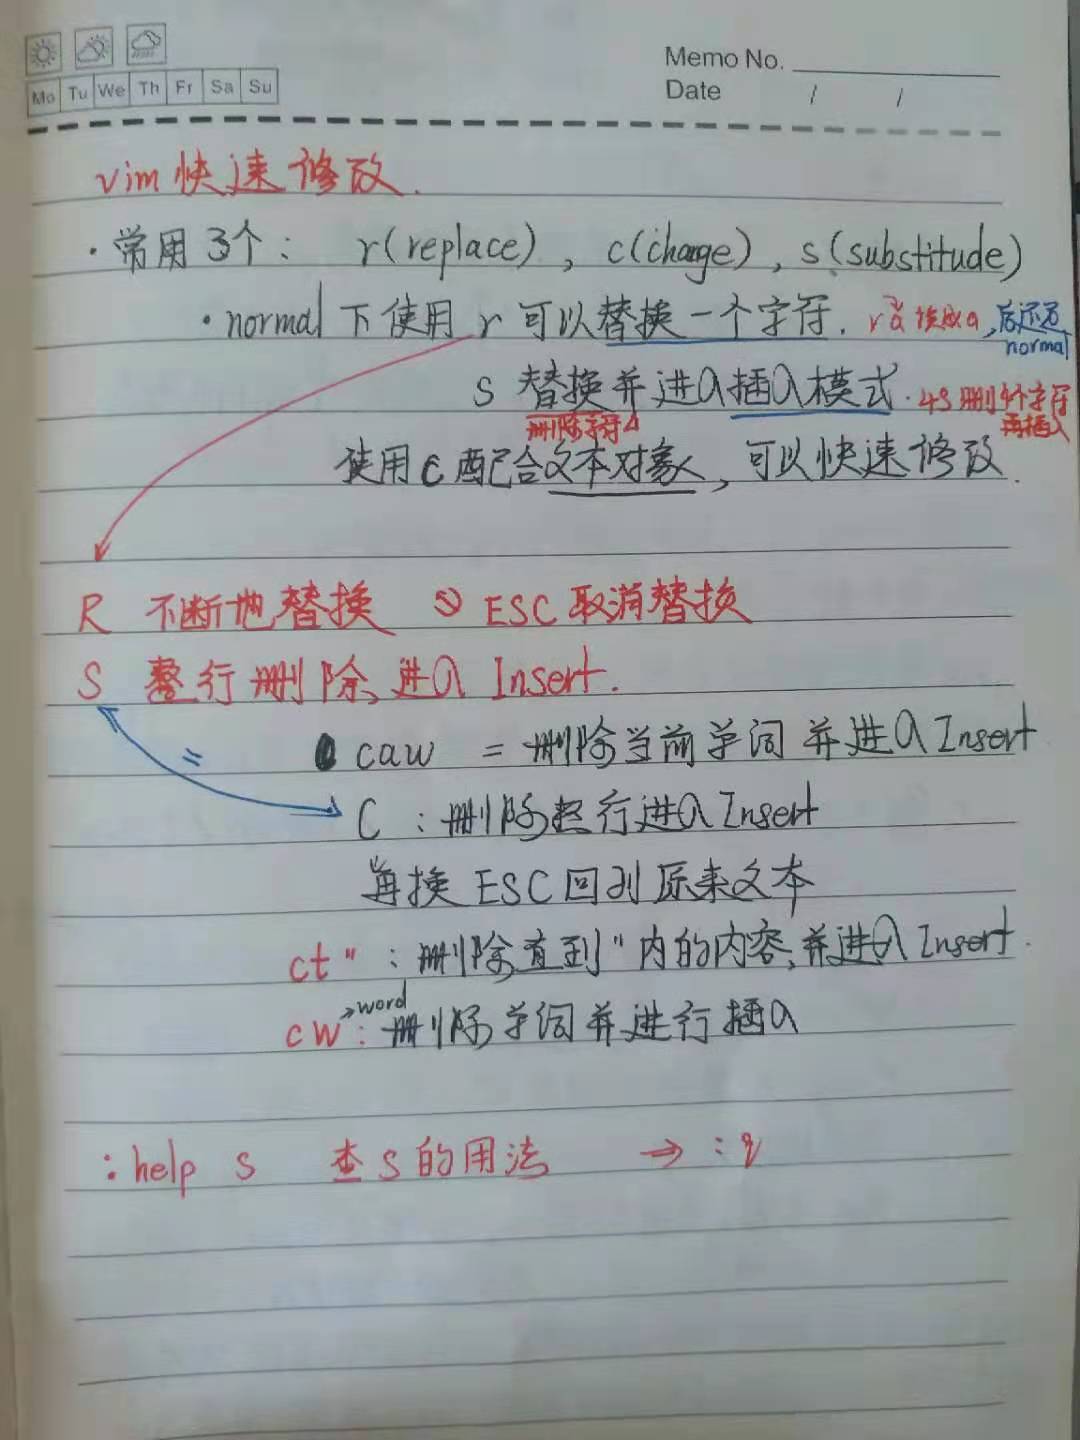 Memo No.
Mo Tu We Th Fr Sa Su
Date / /
vim 快速修改.
· 常用3个: r(replace), c(change), s(substitude)
· normal 下使用 r 可以替换一个字符. ra 换成a, 后还是
normal
s 替换并进入插入模式. 4s 删4个字符
删除字符 再插入
使用c配合文本对象, 可以快速修改.
R 不断地替换 ESC取消替换
S 整行删除, 进入 Insert.
caw = 删除当前单词并进入Insert
=
C : 删除整行进入Insert
再换ESC回到原来文本
ct" : 删除直到"内的内容, 并进入Insert.
→word
cw : 删除单词并进行插入
:help s 查s的用法 → :q